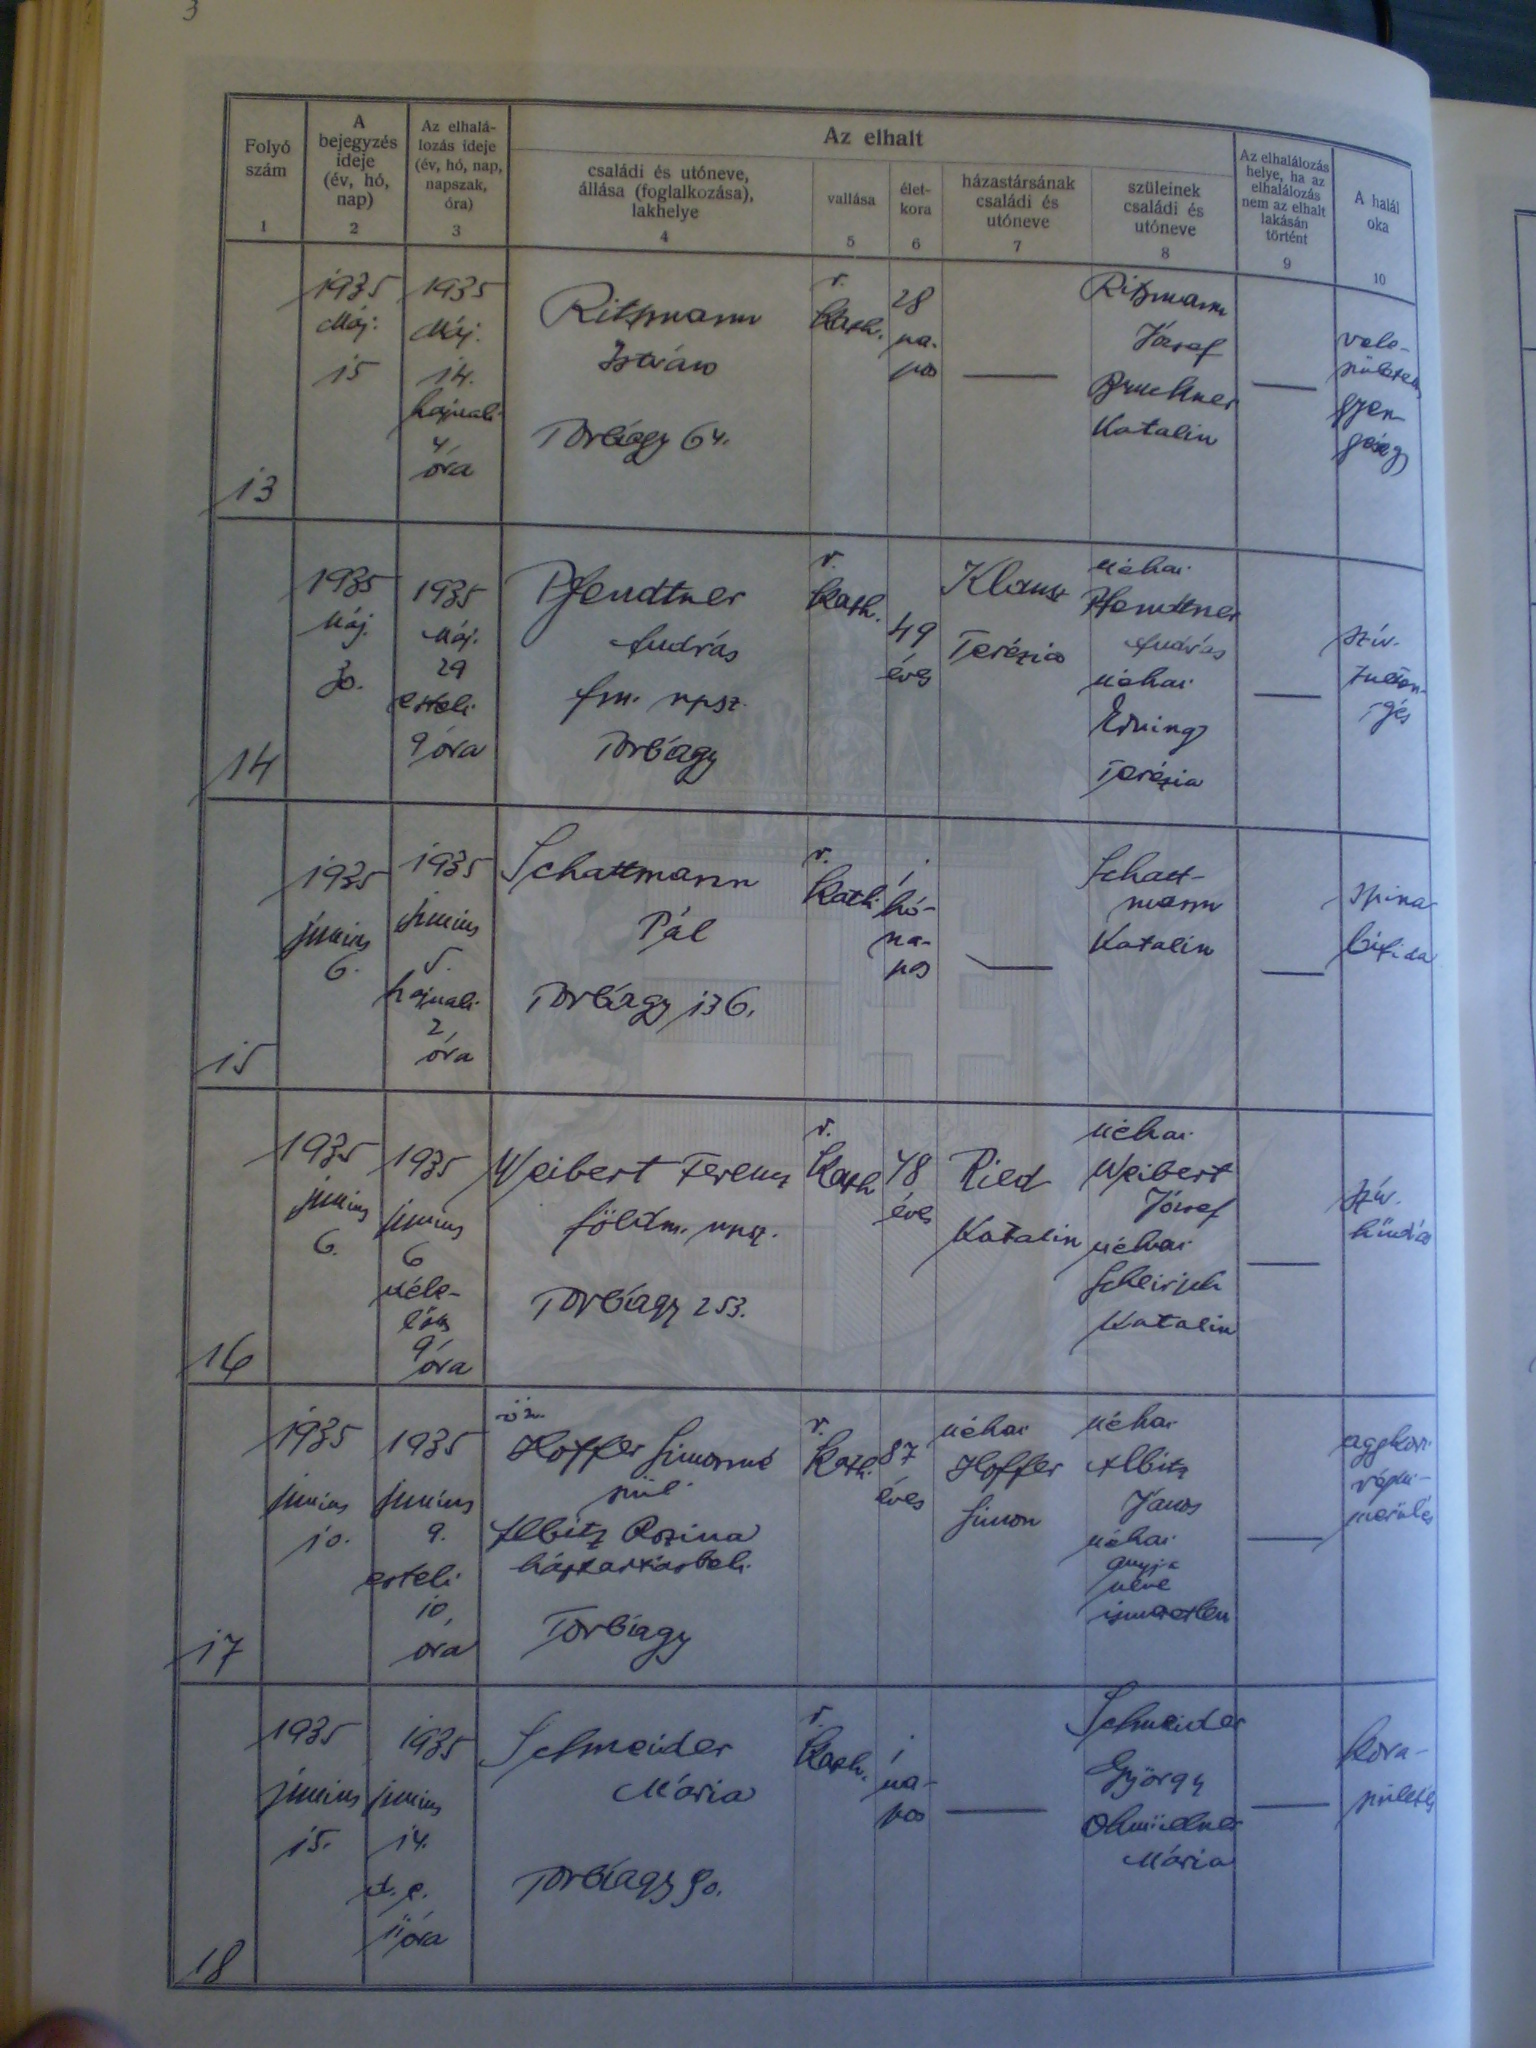 3
Folyó
szám
1
A
bejegyzés
ideje
(év, hó,
nap)
2
Az elhalá-
lozás ideje
(év, hó, nap,
napszak,
óra)
3
Az elhalt
családi és utóneve,
állása (foglalkozása),
lakhelye
4
vallása
5
élet-
kora
6
házastársának
családi és
utóneve
7
szüleinek
családi és
utóneve
8
Az elhalálozás
helye, ha az
elhalálozás
nem az elhalt
lakásán
történt
9
A halál
oka
10
13
1935
Máj.
15
1935
Máj.
14.
hajnali
4
óra
Ritzmann
István
Torbágy 64.
r.
kath.
28
na-
pos
Ritzmann
József
Bruckner
Katalin
vele-
született
gyen-
geség
14
1935
Máj.
30.
1935
Máj.
29
esteli
9 óra
Pfendtner
András
fm. npsz.
Torbágy
r.
kath.
49
éves
Klausz
Terézia
néhai
Pfendtner
András
néhai
Terézia
szív-
15
1935
június
6.
1935
június
5.
hajnali
2,
óra
Schattmann
Pál
Torbágy 136.
r.
kath.
1
hó-
na-
pos
Schatt-
mann
Katalin
spina
bifida
16
1935
június
6.
1935
június
6
déle-
lőtt
9
óra
Weibert Ferenc
földm. npsz.
Torbágy 253.
r.
kath
48
éves
Ried
Katalin
néhai
Weibert
József
néhai
Katalin
szív-
hűdés
17
1935
június
10.
1935
június
9.
esteli
10,
óra
özv.
Hoffer Simonné
szül.
Albitz Rozina
háztartásbeli
Torbágy
r.
kath.
87
éves
néhai
Hoffer
Simon
néhai
Albitz
János
néhai
anyja
neve
ismeretlen
aggkori
végki-
merülés
18
1935
június
15.
1935
június
14.
d. e.
11 óra
Schneider
Mária
Torbágy 90.
r.
kath.
1
na-
pos
Schneider
György
Mária
kora-
születés